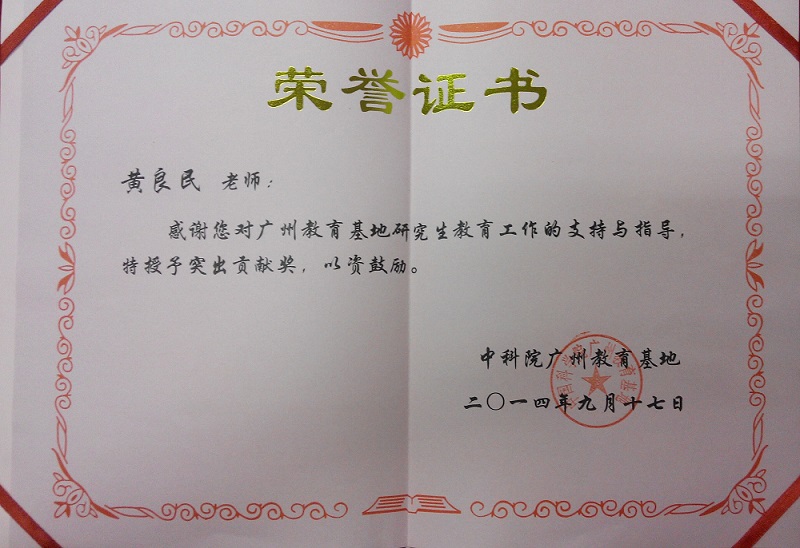 荣誉证书
黄良民 老师：
感谢您对广州教育基地研究生教育工作的支持与指导，
特授予突出贡献奖，以资鼓励。
中科院广州教育基地
二〇一四年九月十七日
中国科学院广州教育基地